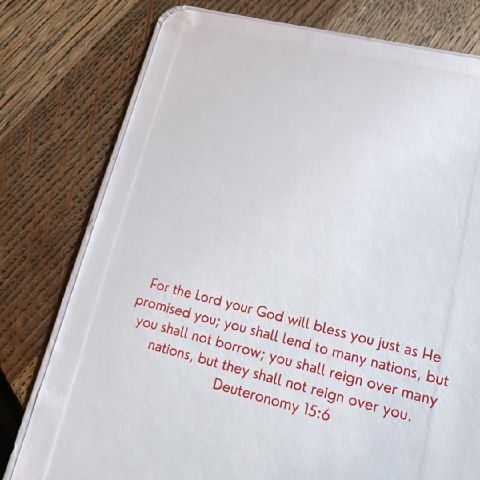 For the Lord your God will bless you just as He
promised you; you shall lend to many nations, but
you shall not borrow; you shall reign over many
nations, but they shall not reign over you.
Deuteronomy 15:6